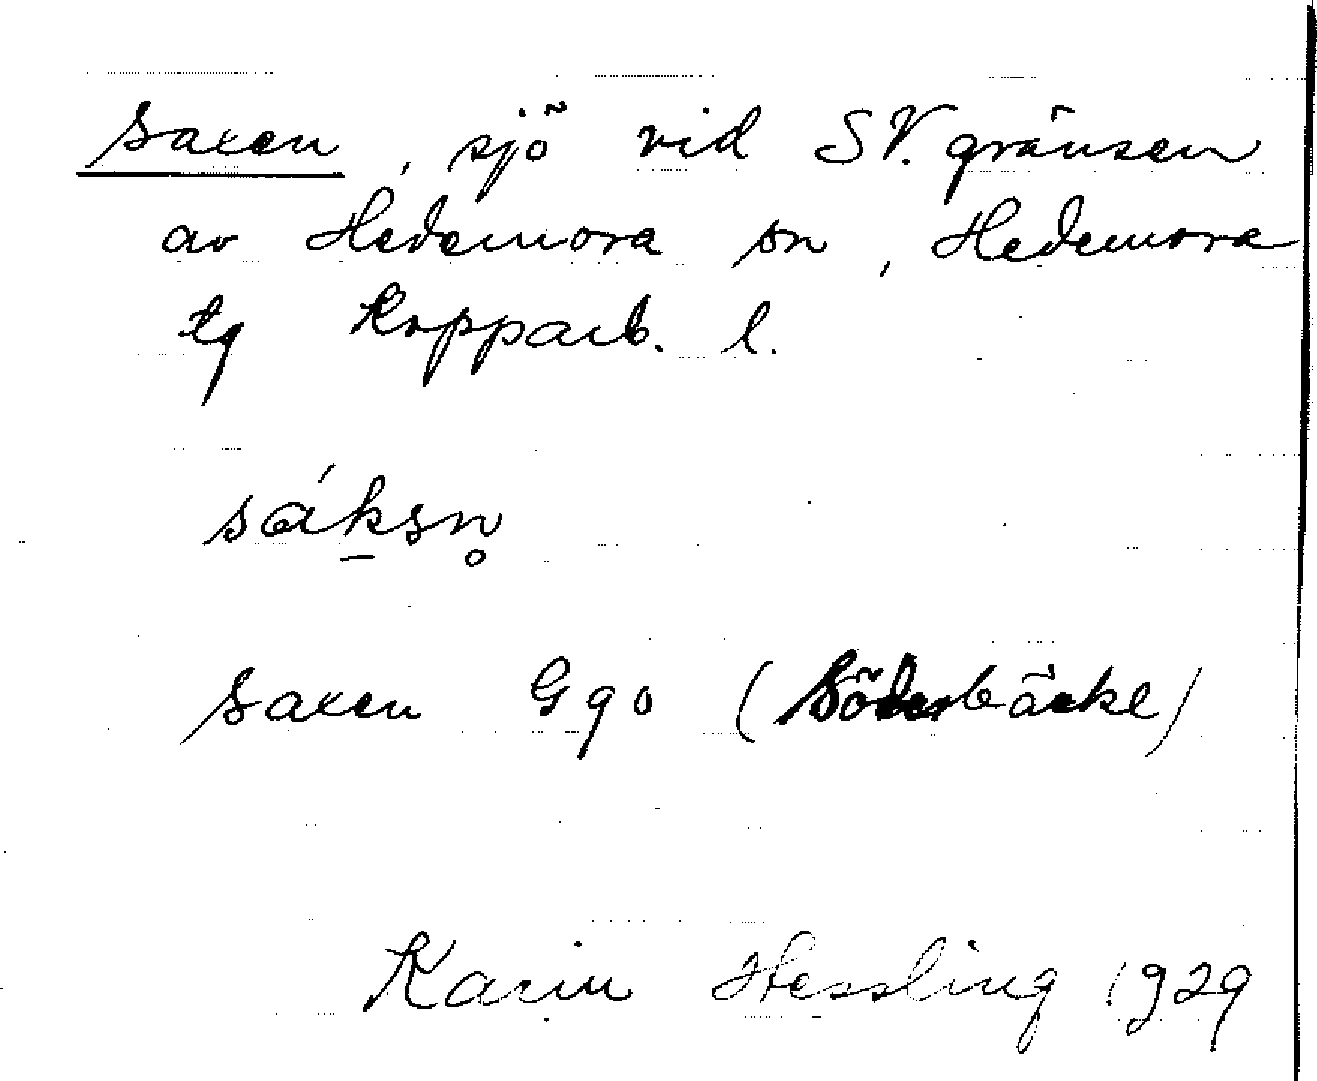 Saxen, sjö vid SV. gränsen
av Hedemora sn, Hedemora
tg Kopparb. l.
sák̠sn̥
Saxen Ggo (Söderbäcke)
Karin Hessling 1929